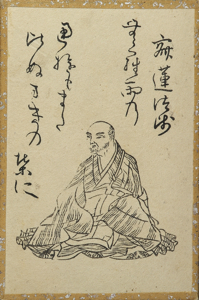 寂蓮法師
むら雨乃
露もまた
ひぬまき乃
葉に